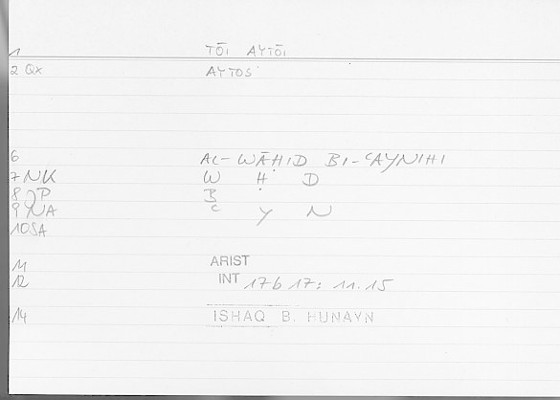 1 TŌI AYTŌI
2 Qx AYTOS
6 AL-WĀḤID BI-ʿAYNIHI
7 NK W Ḥ D
8 JP B
9 NA ʿ Y N
10 SA
11 ARIST
12 INT 17b 17; 11.15
14 ISHAQ B. HUNAYN